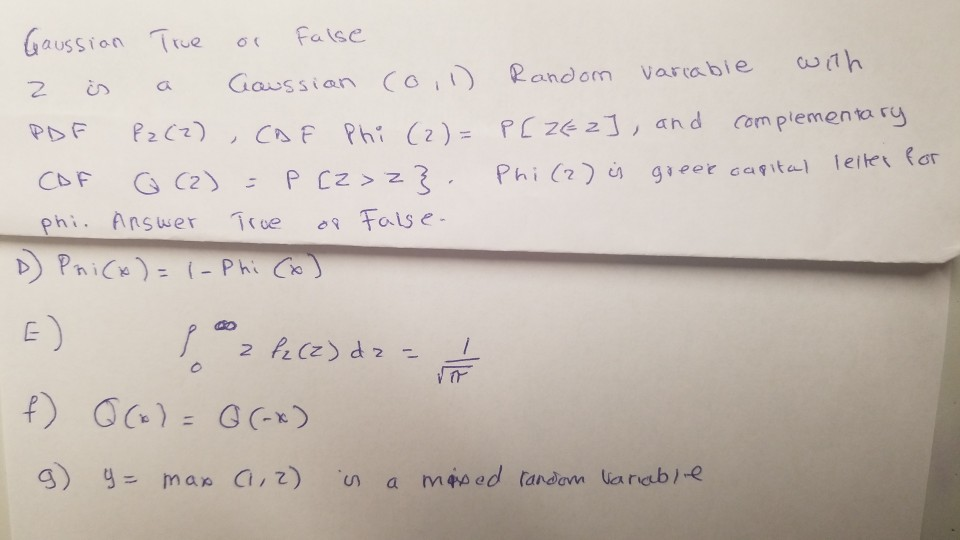 Gaussian True or False
Z is a Gaussian (0,1) Random variable with
PDF fz(z), CDF Phi (z) = P[Z≤z], and complementary
CDF Q(z) = P[Z>z}. Phi(z) is greek capital letter for
phi. Answer True or False.
D) Phi(x) = 1 - Phi(x)
E) ∫₀^∞ z fz(z) dz = 1/√π
f) Q(x) = Q(-x)
g) y = max (1,z) is a mixed random variable